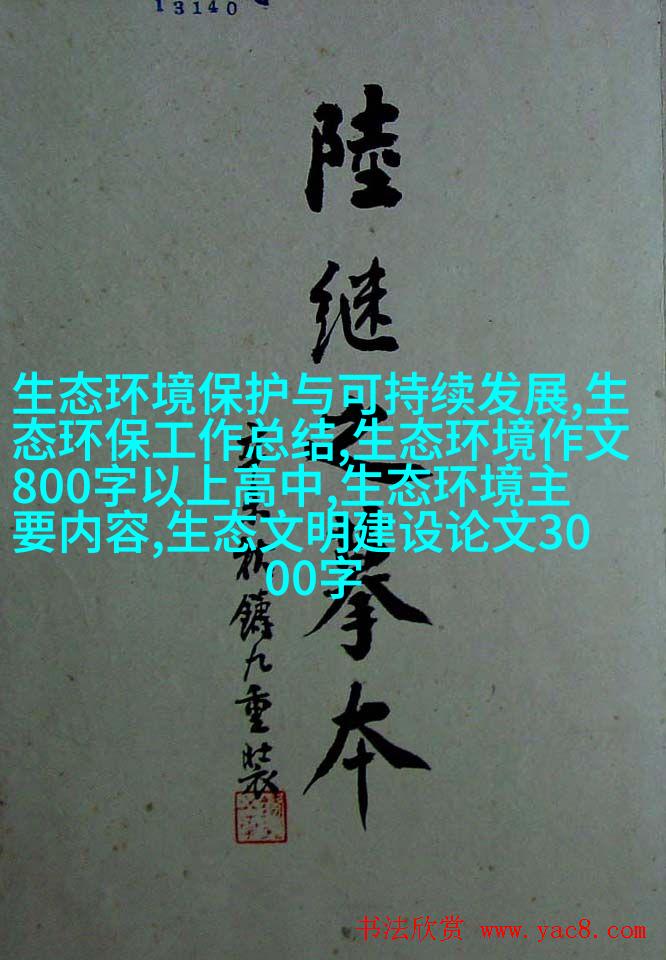 13140
陸继之摹本
鑄九重装
生态环境保护与可持续发展,生
态环保工作总结,生态环境作文
800字以上高中,生态环境主
要内容,生态文明建设论文30
00字
书法欣赏 www.yac8.com